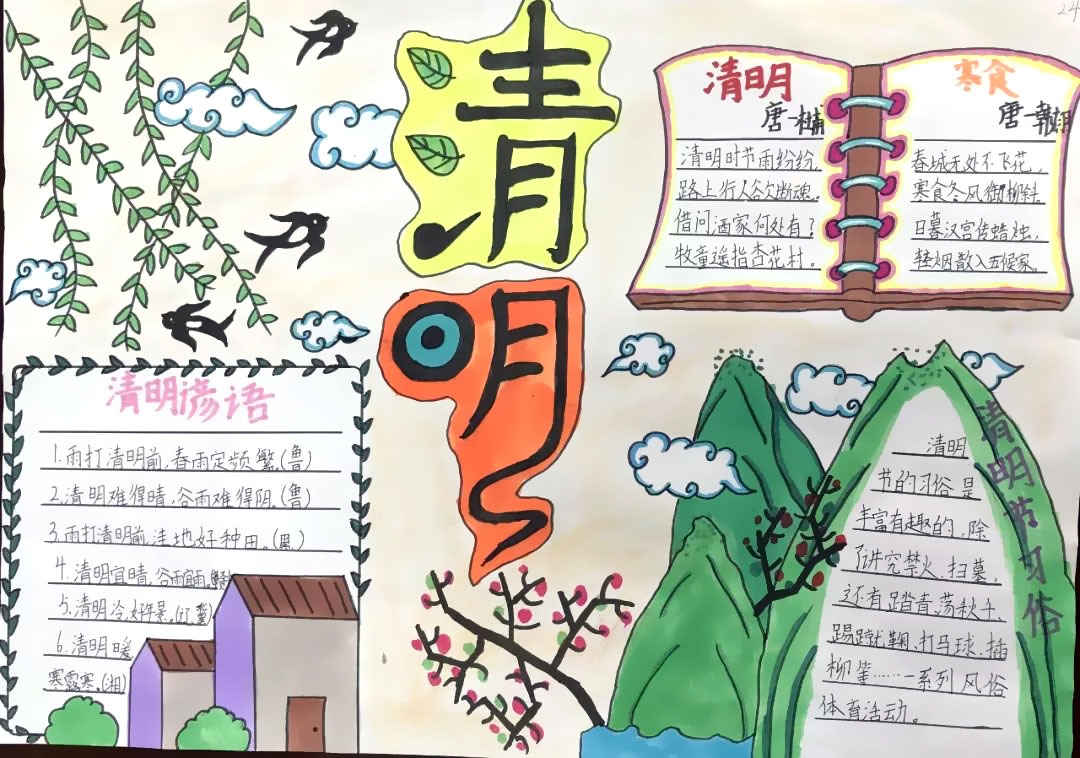 清
明
24
清明
唐一
清明时节雨纷纷,
路上行人欲断魂。
借问酒家何处有?
牧童遥指杏花村。
寒食
唐一
春城无处不飞花,
寒食冬风御柳斜。
日暮汉宫传蜡烛,
轻烟散入五侯家。
清明谚语
1.雨打清明前,春雨定频繁。(鲁)
2.清明难得晴,谷雨难得阴。(鲁)
3.雨打清明前,洼地好种田。(黑)
4.清明宜晴,谷雨宜雨。
5.清明冷,好年景。
6.清明暖
寒露寒。(湘)
清明节习俗
清明
节的习俗是
丰富有趣的,除
了讲究禁火、扫墓,
还有踏青、荡秋千、
踢蹴鞠、打马球、插
柳等……一系列风俗
体育活动。